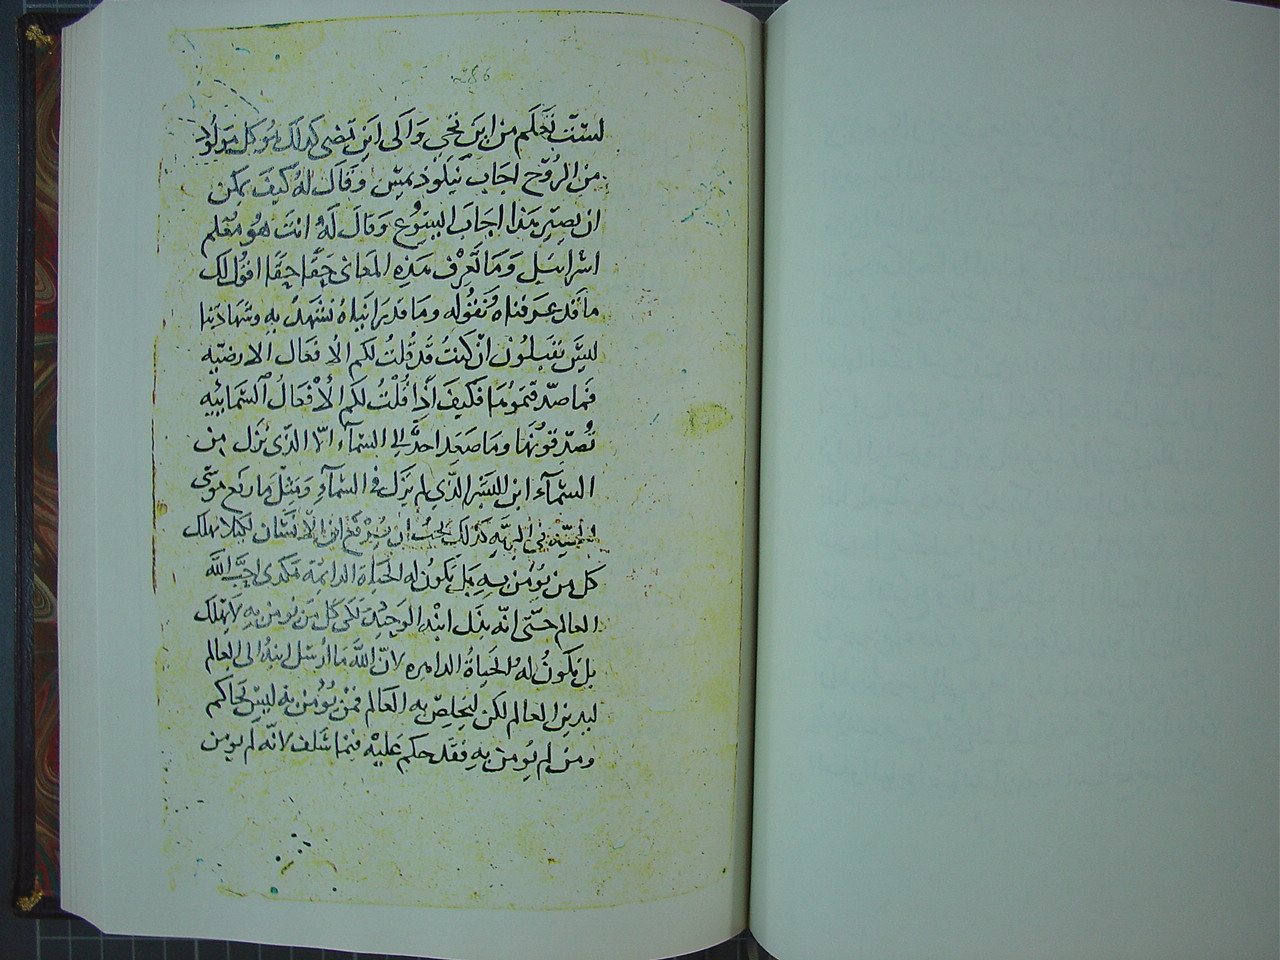 286
لست تحكم من اين تجي والى اين تمضي كذلك هو كل مولود
من الروح اجاب نيقوديمس وقال له كيف يمكن
ان يصير هذا اجاب اليسوع وقال له انت هو معلم
اسراييل وما تعرف هذه المعانى حقًا حِقًا اقول لك
ما قد عرفناه نَقُوله وما قد رايناه نشهد به وشهادتنا
ليسَ تقبلون ان كنتُ قد قلتُ لكم الافعال الارضيه
فما صدّقتموها فكيفَ اذا قُلْتُ لكم الأفعالُ السّمائيه
تُصدّقونها وما صَعِد احدٌ الى السّمآء الّا الذى نزل من
السّمآء ابن البشر الذي لم يزَل في السّمآء ومثل ما رفع موسى
الحيّة في البريّه كذلك يجبُ ان يُرْفع ابن الانسان لكيلا يهلك
كل من يُومن به بَل يكونُ له الحياة الدايمة هكذى احبَّ اللَّه
العالم حتّى انّه بذل ابنه الوحيد لكى كل من يومن به لا يهلك
بل يكونُ لهُ الحياةُ الدايمه لانّ اللّه ما ارسل ابنهُ الى العالم
ليدين العالم لكن ليخلِصّ به العَالم فمن يُؤمن به ليسَ يُحاكم
ومن لم يُومن بهِ فقد حكم عَليْه فيما سَلف لانّه لم يومن